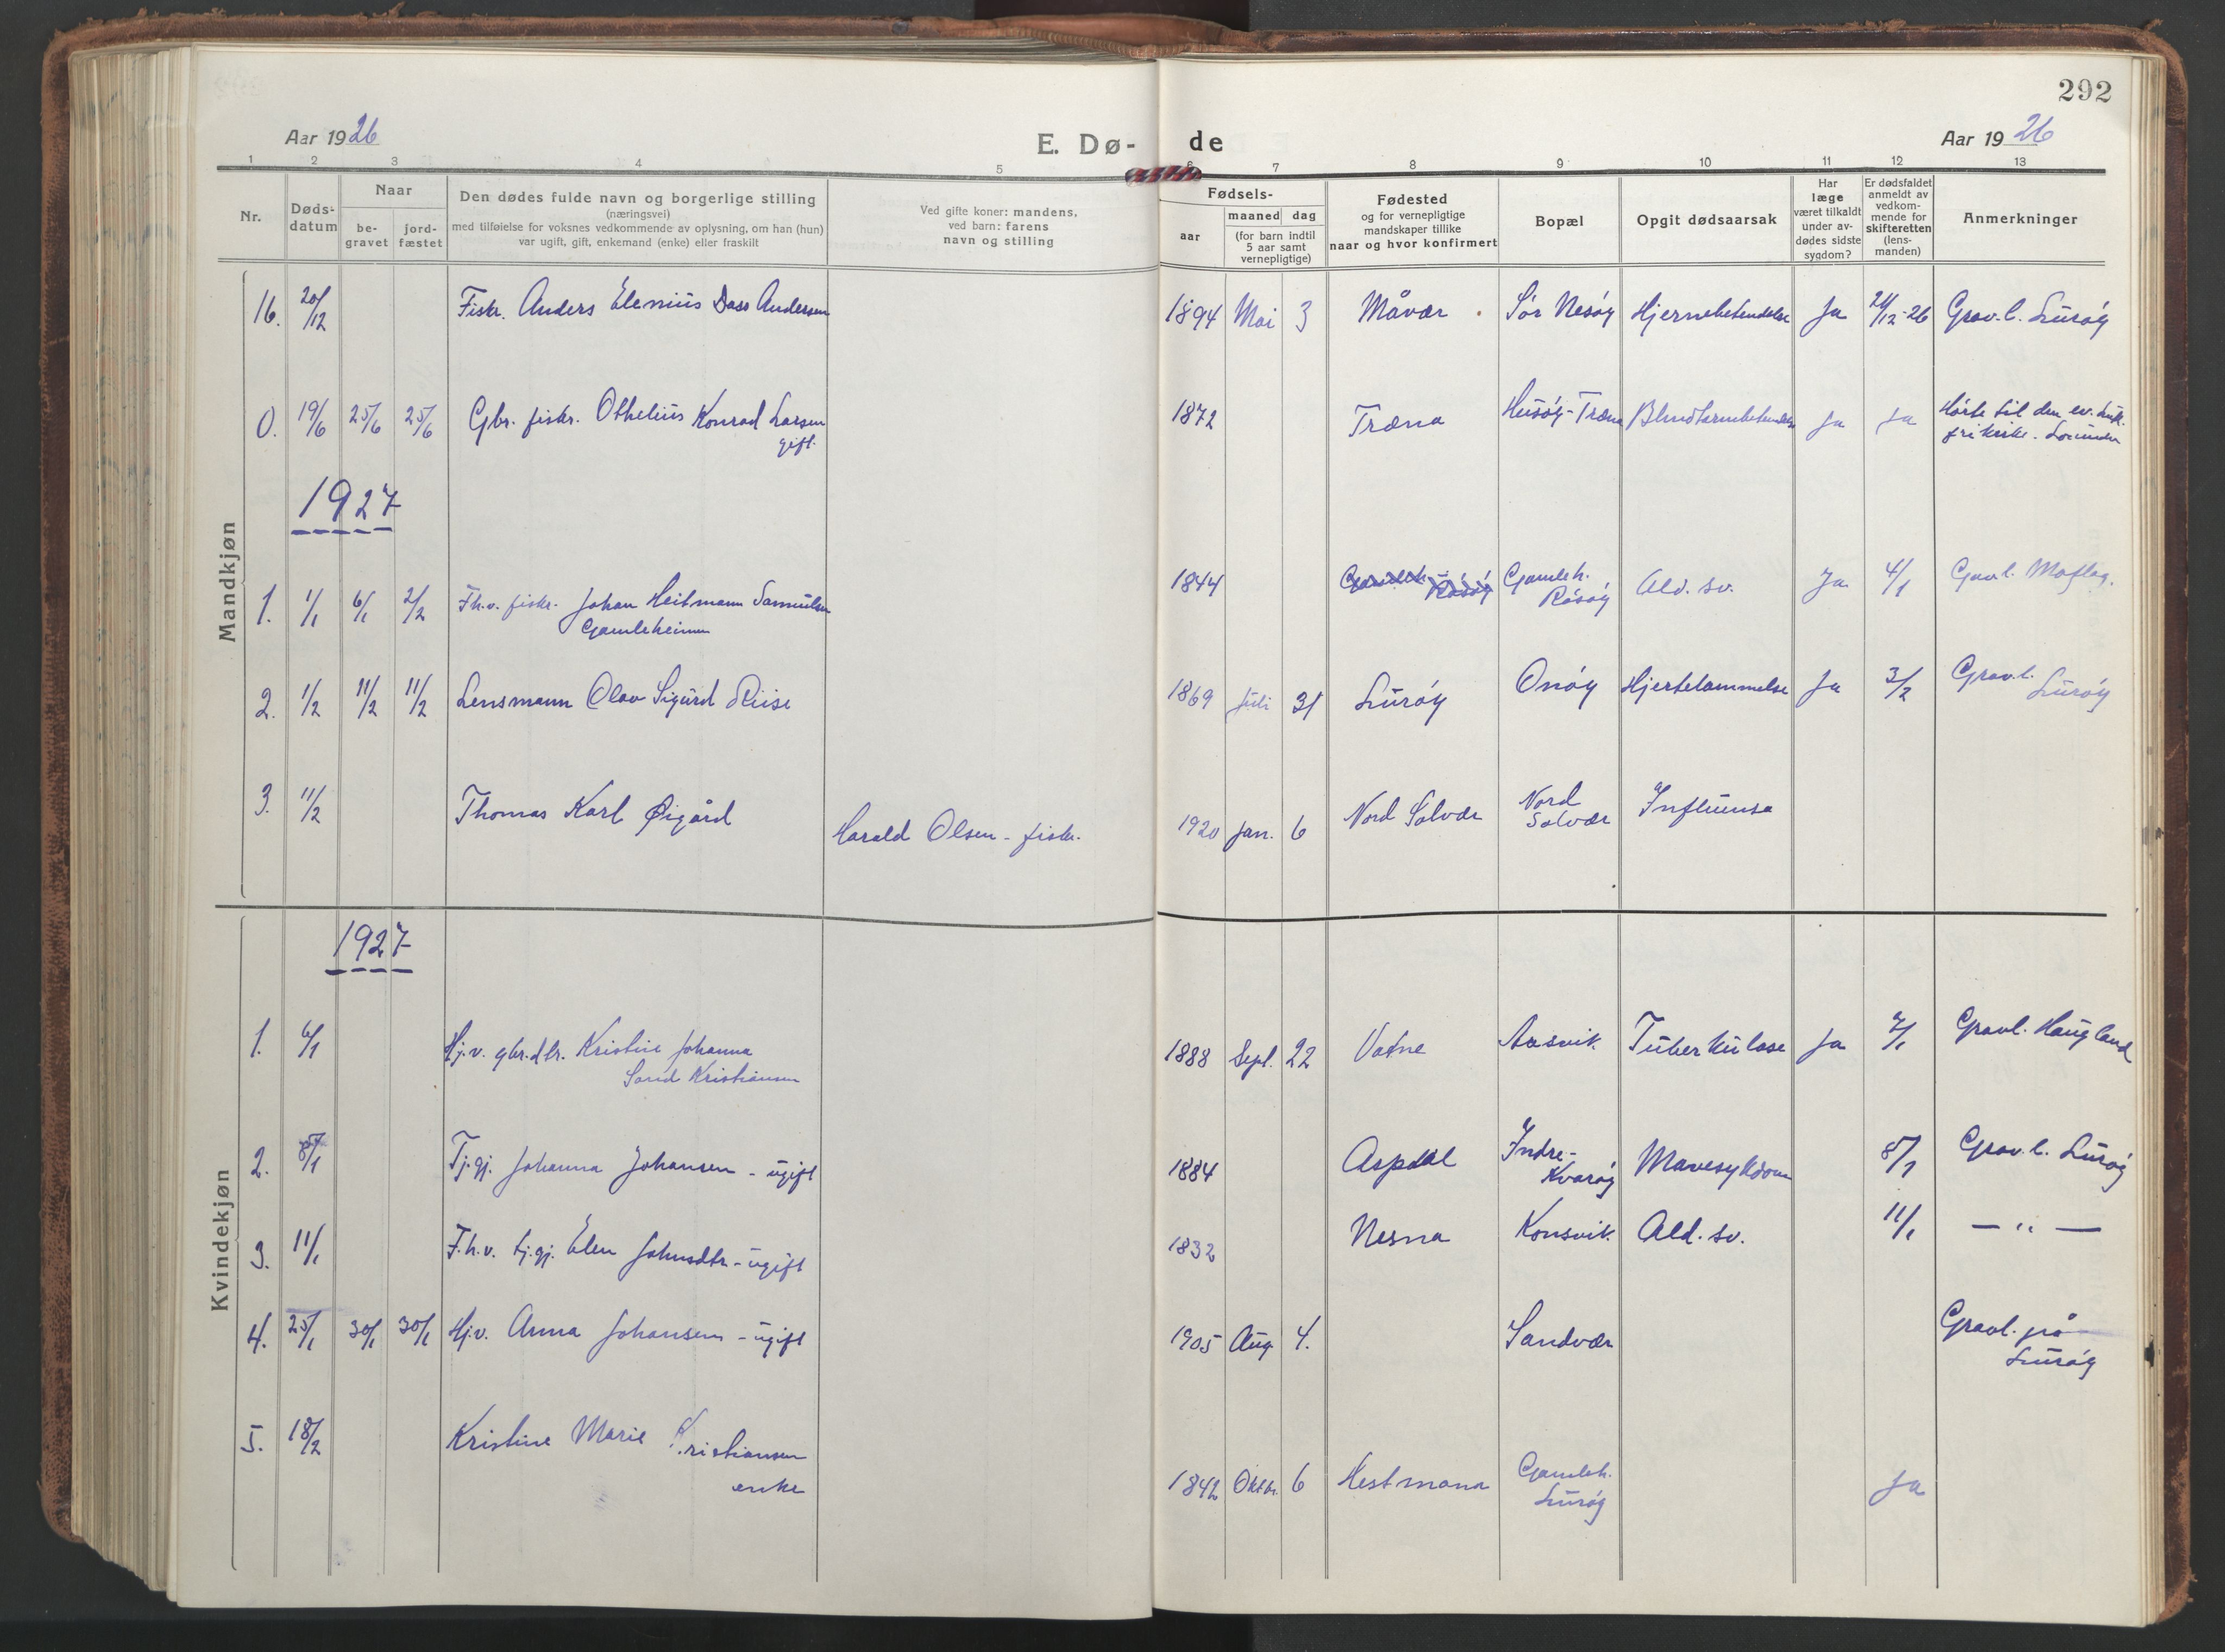 292
Aar 1926
E. Dø-
de
Aar 1926
1 2 3 4 5 6 7 8 9 10 11 12 13
Nr.
Døds-
datum
Naar
be-
gravet
jord-
fæstet
Den dødes fulde navn og borgerlige stilling
(næringsvei)
med tilføielse for voksnes vedkommende av oplysning, om han (hun)
var ugift, gift, enkemand (enke) eller fraskilt
Ved gifte koner: mandens,
ved barn: farens
navn og stilling
Fødsels-
aar
maaned dag
(for barn indtil
5 aar samt
vernepligtige)
Fødested
og for vernepligtige
mandskaper tillike
naar og hvor konfirmert
Bopæl
Opgit dødsaarsak
Har
læge
været tilkaldt
under av-
dødes sidste
sygdom?
Er dødsfaldet
anmeldt av
vedkom-
mende for
skifteretten
(lens-
manden)
Anmerkninger
Mandkjøn
16. 20/12 Fisk. Anders Elenius Dass Andersen 1894 Mai 3 Måvær Sør Nesøy Hjernebetendelse Ja 24/12-26 Grav.l. Lurøy
0. 19/6 25/6 25/6 Gbr. fiskr. Othelius Konrad Larsen 1872 Træna Husøy-Træna Blindtarmbetendelse Ja Ja Hørte til den ev. luth.
gift. frikirke. Lovunden
1927
1. 1/1 6/1 2/2 Fh.v. fiskr. Johan Heitmann Samuelsen 1844 Gamleh. Røsøy Gamleh. Ald. sv. Ja 4/1 Gravl. Moflag.
Gamleheimen Røsøy
2. 1/2 11/2 11/2 Lensmann Olav Sigurd Riise 1869 Juli 31 Lurøy Onøy Hjertelammelse Ja 3/2 Grav.l.
Lurøy
3. 11/2 Thomas Karl Øigård Harald Olsen - fiskr. 1920 Jan. 6 Nord Solvær Nord Influensa
Solvær
Kvindekjøn
1927
1. 6/1 Hj.v. gbr.dtr. Kristine Johanna 1888 Sept. 22 Vatne Aasvik Tuberkulose Ja 7/1 Gravl. Haugland
Sand Kristiansen
2. 8/1 Tj.gj. Johanna Johansen - ugift 1884 Aspdal Indre- Mavesykdom 8/1 Grav.l. Lurøy
Kvarøy
3. 11/1 F.h.v. tj.gj. Elen Johnsdtr. - ugift 1832 Nesna Konsvik Ald. sv. 11/1 — " —
4. 25/1 30/1 30/1 Hj.v. Anna Johansen - ugift 1905 Aug 4. Sandvær Gravl. på
Lurøy
5. 18/2 Kristine Marie Kristiansen 1842 Oktbr. 6 Hestmona Gamleh. Ja
enke Lurøy